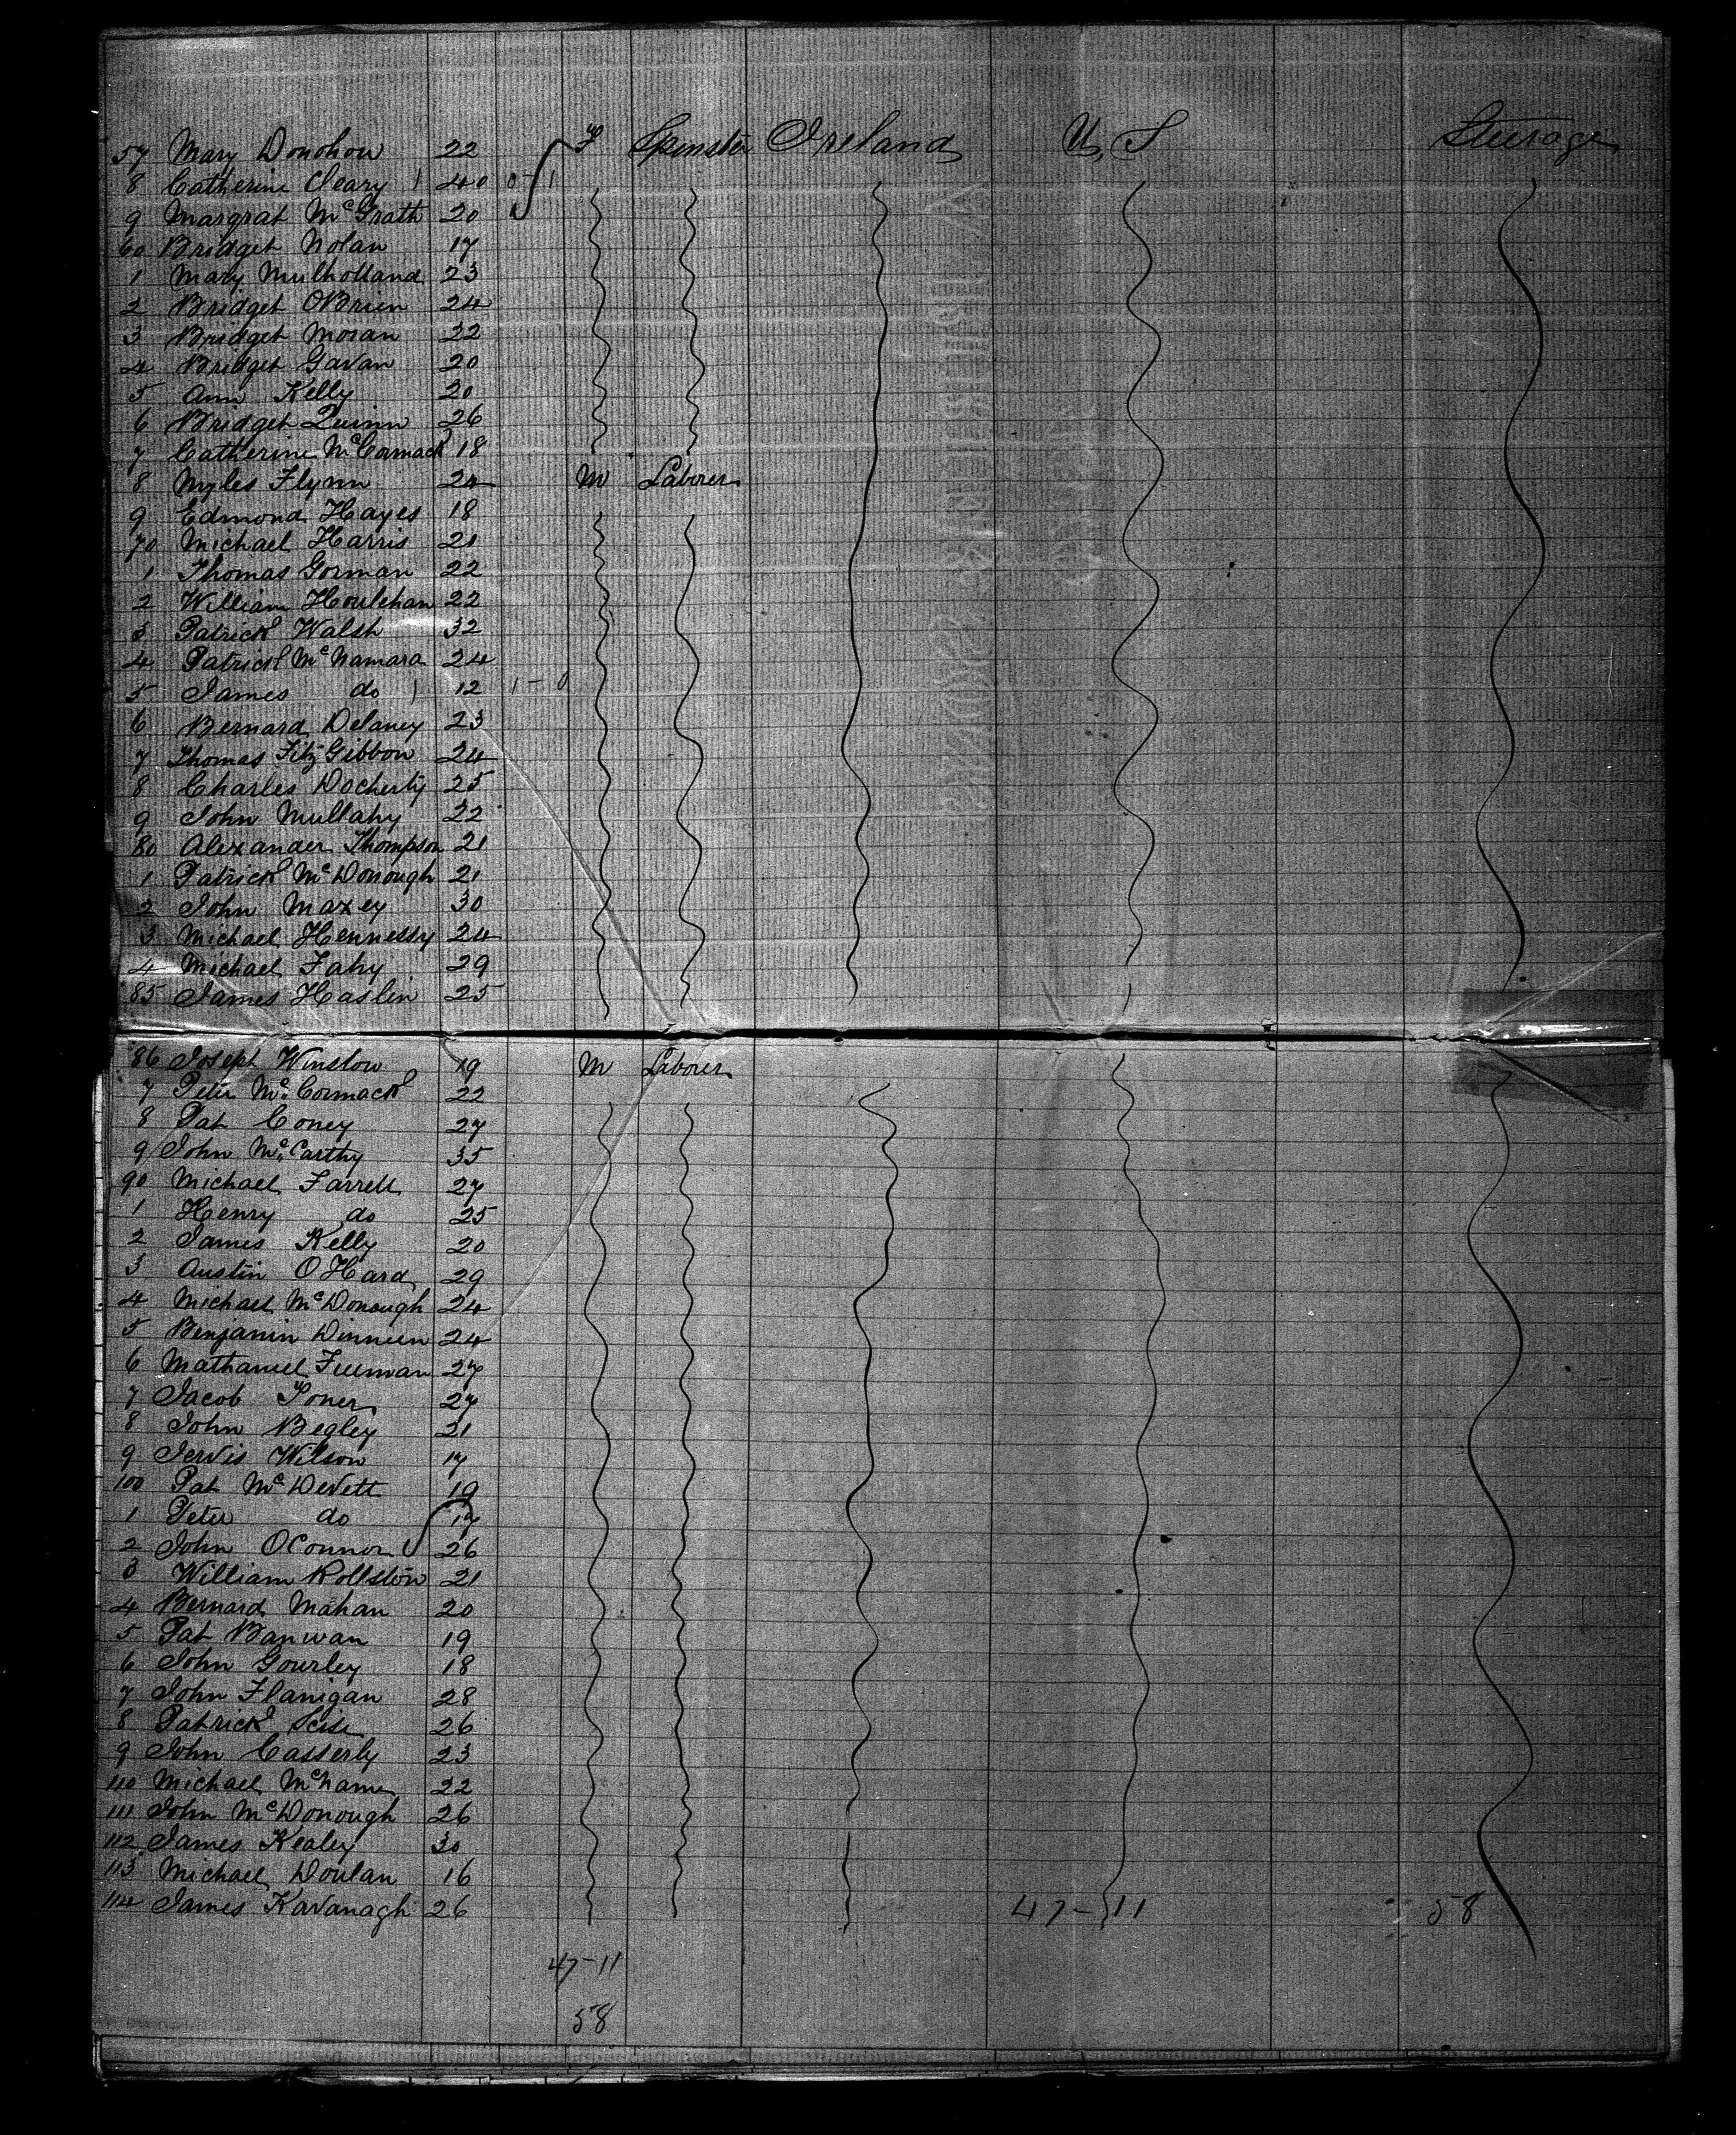 57 Mary Donohow 22 F Spinster Ireland U,S Steerage
8 Catherine Cleary 1 40 0-1
9 Margrat McGrath 20
60 Bridget Nolan 17
1 Mary Mulholland 23
2 Bridget OBrien 24
3 Bridget Moran 22
4 Bridget Gavan 20
5 Ann Kelly 20
6 Bridget Quinn 26
7 Catherine McCormack 18
8 Myles Flynn 24 M Laborer
9 Edmond Hayes 18
70 Michael Harris 21
1 Thomas Gorman 22
2 William Houlehan 22
3 Patrick Walsh 32
4 Patrick McNamara 24
5 James do 1 12 1-0
6 Bernard Delaney 23
7 Thomas FitzGibbon 24
8 Charles Docherty 25
9 John Mullahy 22
80 Alexander Thompson 21
1 Patrick McDonough 21
2 John Maxey 30
3 Michael Hennessy 24
4 Michael Fahy 29
85 James Haslin 25
86 Joseph Winslow 19 M Laborer
7 Peter McCormack 22
8 Pat Coney 27
9 John McCarthy 35
90 Michael Farrell 27
1 Henry do 25
2 James Kelly 20
3 Austin OHard 29
4 Michael McDonough 24
5 Benjamin Dinneen 24
6 Mathaniel Freeman 27
7 Jacob Toner 27
8 John Begley 21
9 Jervis Wilson 17
100 Pat McDevett 19
1 Peter do 17
2 John OConnor 26
3 William Rollston 21
4 Bernard Mahan 20
5 Pat Banwan 19
6 John Gourley 18
7 John Flanigan 28
8 Patrick 26
9 John Casserly 23
110 Michael McName 22
111 John McDonough 26
112 James Kealey 30
113 Michael Doulan 16
114 James Kavanagh 26 47-11 58
47-11
58